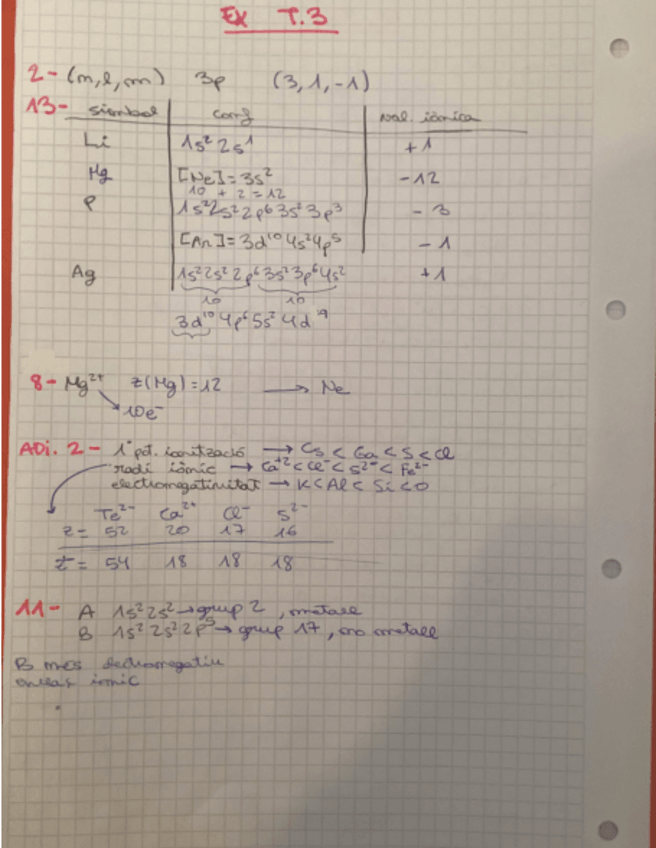 Ex T.3
2- (m,l,m) 3p (3,1,-1)
13- símbol conf val. iònica
Li 1s² 2s¹ +1
Mg [Ne]=3s² -12
10 + 2 = 12
P 1s²2s²2p⁶3s²3p³ -3
[Ar]=3d¹⁰4s²4p⁵ -1
Ag 1s²2s²2p⁶3s²3p⁶4s² +1
10 10
3d¹⁰4p⁶5s²4d¹⁹
8- Mg²⁺ z(Mg)=12 → Ne
10e⁻
ADi. 2- 1ª pot. ionització → Cs < Ga < S < Cl
radi iònic → Ca⁺² < Cl⁻ < S²⁻ < Te²⁻
electronegativitat → K < Al < Si < O
Te²⁻ Ca²⁺ Cl⁻ S²⁻
z= 52 20 17 16
z= 54 18 18 18
11- A 1s²2s² → grup 2, metall
B 1s²2s²2p⁵ → grup 17, no metall
B mes electronegatiu
enllaç iònic